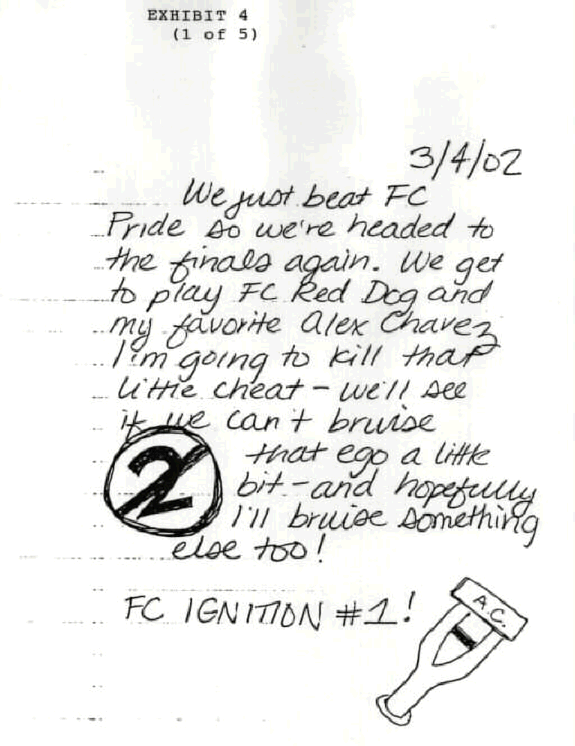 EXHIBIT 4
(1 of 5)
3/4/02
We just beat FC
Pride so we're headed to
the finals again. We get
to play FC Red Dog and
my favorite Alex Chavez
I'm going to kill that
little cheat - we'll see
if we can't bruise
that ego a little
2
bit - and hopefully
I'll bruise something
else too!
FC IGNITION #1!
A.C.